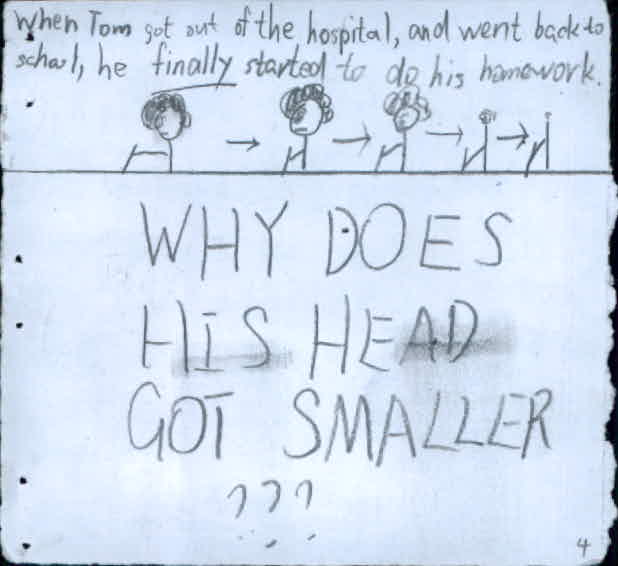 When Tom got out of the hospital, and went back to
school, he finally started to do his homework.
WHY DOES
HIS HEAD
GOT SMALLER
???
4